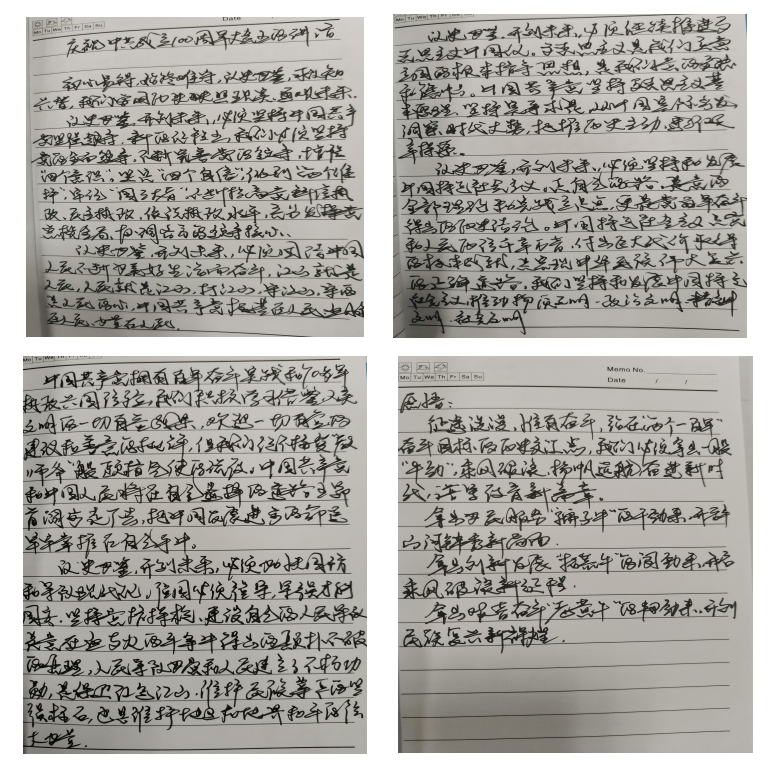 Date
Mo Tu We Th Fr Sa Su
庆祝中共成立100周年大会上的讲话
初心易得，始终难守，以史为鉴，可以知
兴替，我们要用历史映照现实、远观未来。
以史为鉴，开创未来，必须坚持中国共产
党坚强领导，新的征程上，我们必须坚持
党的全面领导，不断完善党的领导，增强
"四个意识"、坚定"四个自信"、做到"两个维
护"，牢记"国之大者"，不断提高党科学执
政、民主执政、依法执政水平，充分发挥党
总揽全局、协调各方的领导核心
以史为鉴，开创未来，必须团结带领中国
人民不断为美好生活而奋斗，江山就是
人民，人民就是江山，打江山、守江山，守的
是人民的心，中国共产党根基在人民、血脉
在人民、力量在人民。
Mo Tu We Th Fr Sa Su
以史为鉴，开创未来，必须继续推进马
克思主义中国化。马克思主义是我们立党
立国的根本指导思想，是我们党的灵魂
和旗帜。中国共产党坚持马克思主义基
本原理，坚持实事求是，从中国实际出发
洞察时代大势，把握历史主动，进行艰
辛探索。
以史为鉴，开创未来，必须坚持和发展
中国特色社会主义，走自己的路，是党的
全部理论和实践立足点，更是党百年奋斗
得出的历史结论。中国特色社会主义是党
和人民历经千辛万苦、付出巨大代价取得
的根本成就，是实现中华民族伟大复兴
的正确道路，我们坚持和发展中国特色
社会主义，推动物质文明、政治文明、精神
文明、社会文明
Mo Tu We Th Fr Sa Su
中国共产党拥有百年奋斗实践和70多年
执政兴国经验，我们积极学习借鉴人类
文明的一切有益成果，欢迎一切有益的
建议和善意的批评，但我们绝不接受"教
师爷"般颐指气使的说教，中国共产党
和中国人民将在自己选择的道路上昂
首阔步走下去，把中国发展进步的命运
牢牢掌握在自己手中。
以史为鉴，开创未来，必须加快国防
和军队现代化，强国必须强军，军强才能
国安。坚持党指挥枪、建设自己的人民军队
是党在血与火的斗争中得出的颠扑不破
的真理，人民军队为党和人民建立了不朽功
勋，是保卫红色江山、维护民族尊严的坚
强柱石，也是维护地区和世界和平的强
大力量。
Mo Tu We Th Fr Sa Su
Memo No.
Date / /
感悟：
征途漫漫，惟有奋斗，站在"两个一百年"
奋斗目标的历史交汇点，我们必须拿出一股
"牛劲"，乘风破浪，扬帆远航，奋进新时
代，谱写教育新篇章。
拿出为民服务"孺子牛"的干劲来，开辟
山河锦绣新局面。
拿出创新发展"拓荒牛"的闯劲来，开启
乘风破浪新征程。
拿出艰苦奋斗"老黄牛"的韧劲来，开创
民族复兴新辉煌。